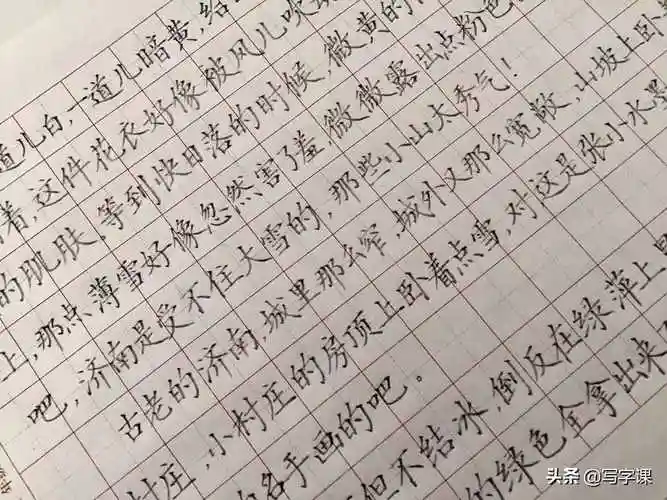 道儿白,一道儿暗黄,给
着,这件花衣好像被风儿吹
的肌肤,等到快日落的时候,微黄的
上,那点薄雪好像忽然害了羞,微微露出点粉色
吧,济南是受不住大雪的,那些小山太秀气!
古老的济南,城里那么窄,城外又那么宽敞,山坡上卧
村庄,小村庄的房顶上卧着点雪,对这是张小水墨
名手画的吧。
但不结冰,倒反在绿萍上
的绿色全拿出来
头条 @写字课